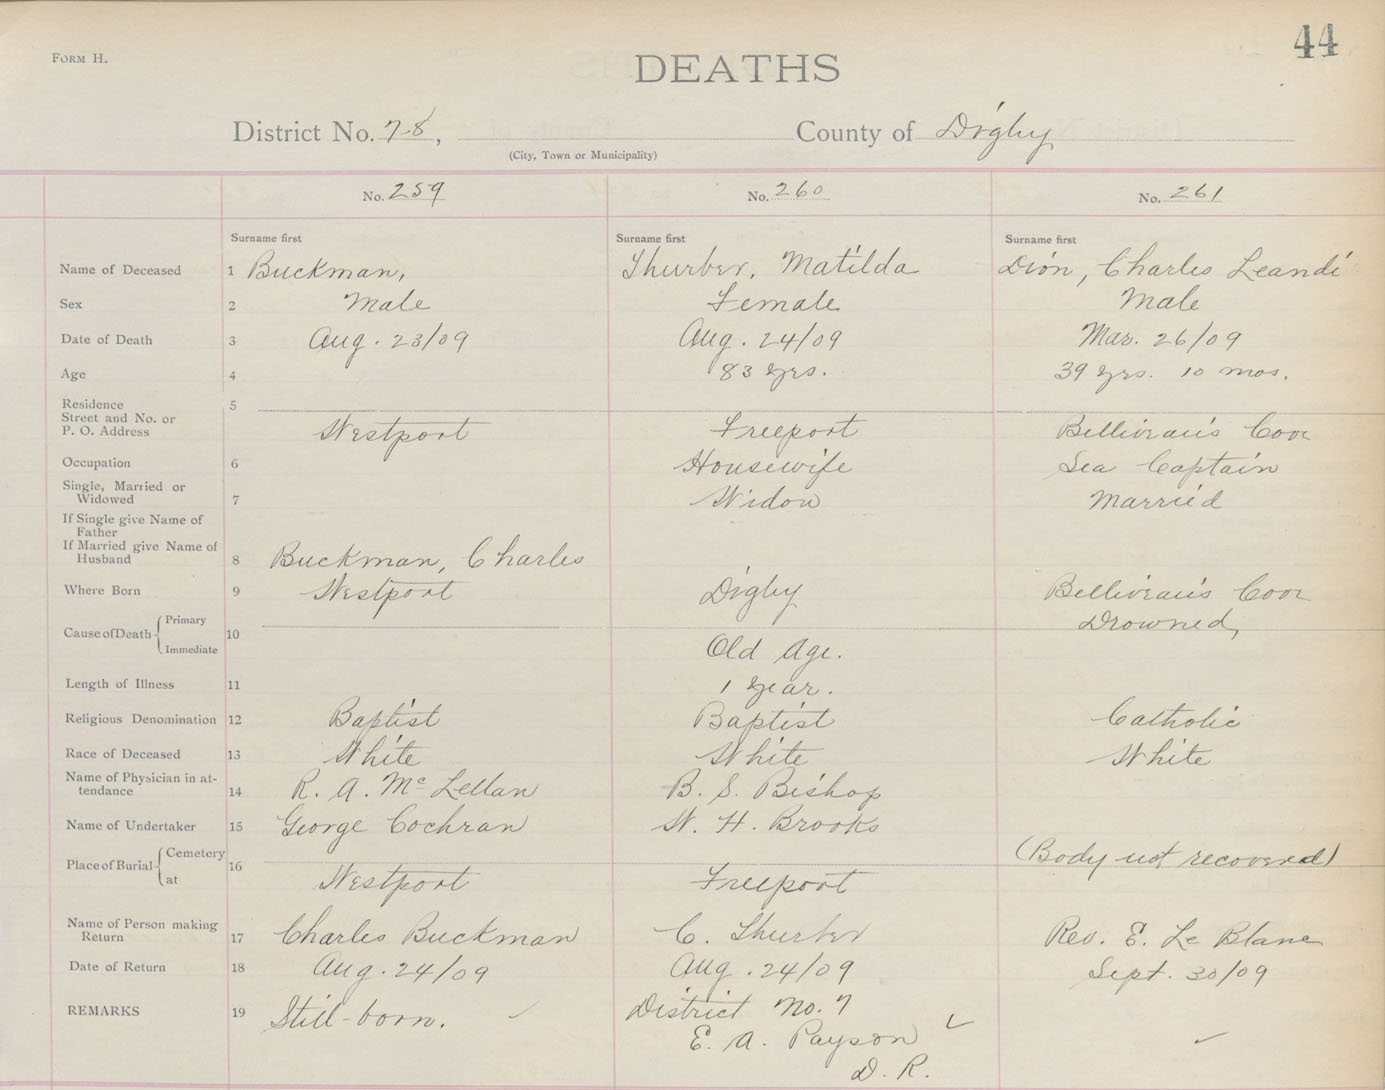 44
FORM H.
DEATHS
District No. 78, County of Digby
(City, Town or Municipality)
No. 259 No. 260 No. 261
Surname first Surname first Surname first
Name of Deceased 1 Buckman, Thurber, Matilda Dion, Charles Leandi
Sex 2 Male Female Male
Date of Death 3 Aug. 23/09 Aug. 24/09 Mar. 26/09
Age 4 83 yrs. 39 yrs. 10 mos.
Residence 5
Street and No. or
P. O. Address Westport Freeport Belliveau's Cove
Occupation 6 Housewife Sea Captain
Single, Married or
Widowed 7 Widow Married
If Single give Name of
Father
If Married give Name of
Husband 8 Buckman, Charles
Where Born 9 Westport Digby Belliveau's Cove
Cause of Death Primary 10 Drowned,
Immediate Old Age.
Length of Illness 11 1 year.
Religious Denomination 12 Baptist Baptist Catholic
Race of Deceased 13 White White White
Name of Physician in at-
tendance 14 R. A. McLellan B. S. Bishop
Name of Undertaker 15 George Cochran W. H. Brooks
Place of Burial Cemetery 16 (Body not recovered)
at Westport Freeport
Name of Person making
Return 17 Charles Buckman C. Thurber Rev. E. Le Blanc
Date of Return 18 Aug. 24/09 Aug. 24/09 Sept. 30/09
REMARKS 19 Still-born. District No. 7
E. A. Payson
D. R.